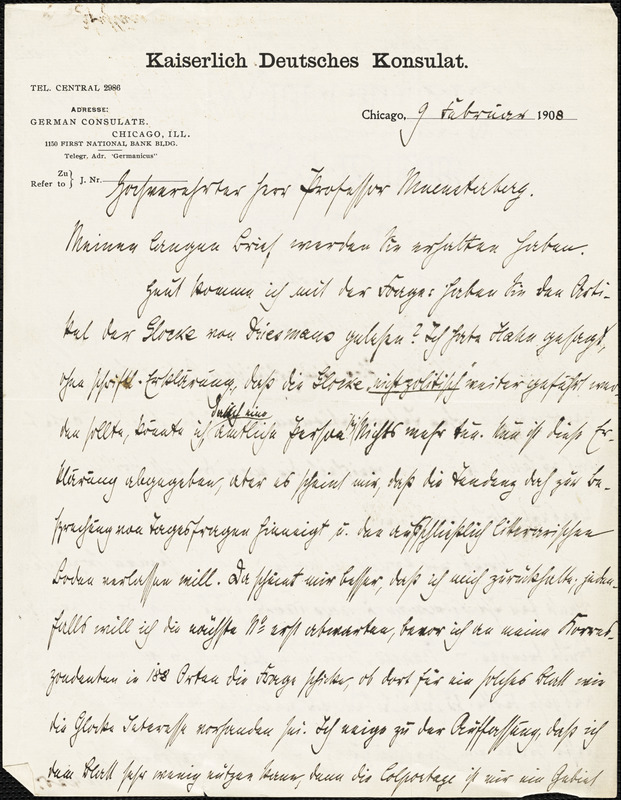 Kaiserlich Deutsches Konsulat.
TEL. CENTRAL 2986
ADRESSE:
GERMAN CONSULATE.
CHICAGO, ILL.
1150 FIRST NATIONAL BANK BLDG.
Telegr. Adr. "Germanicus"
Chicago, 9 Februar 1908
Zu
Refer to } J. Nr.
Hochverehrter Herr Professor Muensterberg.
Meinen langen Brief werden Sie erhalten haben.
Heut komme ich mit der Frage: haben Sie den Arti-
kel der Glocke von gelesen? Ich hatte Hahn gesagt,
ohne schriftl. Erklärung, daß die Glocke "nicht politisch" weiter geführt wer-
den sollte, könnte ich amtliche Person Nichts mehr tun. Nun ist diese Er-
klärung abgegeben, aber es scheint mir, daß die Tendenz doch zur Be-
sprechung von Tagesfragen hinneigt u. den ausschließlich literarischen
Boden verlassen will. Da scheint mir besser, daß ich mich zurückhalte, jeden-
falls will ich die nächste No erst abwarten, bevor ich an meine Korres-
pondenten in 188 Orten die Frage schicke, ob dort für ein solches Blatt wie
die Glocke Interesse vorhanden sei. Ich neige zu der Auffassung, daß ich
dem Blatt sehr wenig nützen kann, denn die Colportage ist mir ein Gebiet